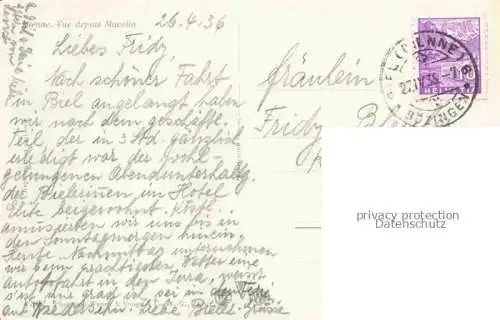 Bienne. Vue depuis Macolin
26.4.36
Liebes Fridy,
Nach schöner Fahrt
in Biel angelangt haben
wir nach dem geschäftl.
Teil, der in 3 Std. gänzlich
erledigt war der wohl-
gelungenen Abendunterhaltg.
der Bielerinnen im Hotel
Elite beigewohnt. Köstl.
amüsierten wir uns bis in
den Sonntagmorgen hinein.
Heute Nachmittag unternehmen
wir beim prächtigsten Wetter eine
Autofahrt in den Jura, weisst
s'ist uns grad in sei in dem
Auf Wiedersehn. Liebe Bieler-Grüsse
Fräulein
Fridy
BIEL (BIENNE)
27.IV.36
BÖZINGEN
HELVETIA
privacy protection
Datenschutz